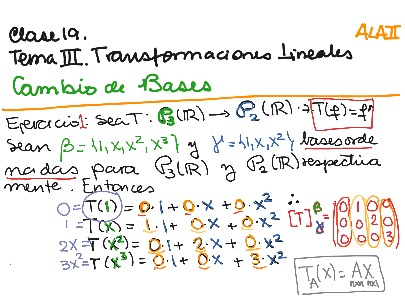 Clase 19. ALA II
Tema III. Transformaciones Lineales
Cambio de Bases
Ejercicio 1: Sea T: P₃(ℝ) → P₂(ℝ) ∋ T(p) = p'
Sean β = {1, x, x², x³} y γ = {1, x, x²} bases orde
nadas para P₃(ℝ) y P₂(ℝ) respectiva
mente. Entonces
0 = T(1) = 0·1 + 0·x + 0·x²
1 = T(x) = 1·1 + 0·x + 0·x²
2x = T(x²) = 0·1 + 2·x + 0·x²
3x² = T(x³) = 0·1 + 0·x + 3·x²
∴ [T] β γ = [0 1 0 0
0 0 2 0
0 0 0 3]
T_A(x) = AX